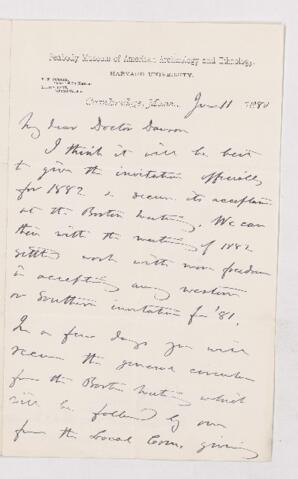 Peabody Museum of American Archæology and Ethnology,
HARVARD UNIVERSITY.
Cambridge, Mass. June 11 1880
My dear Doctor Dawson
I think it will be best
to give the invitation officially
for 1882 & secure its acceptance
at the Boston Meeting. We can
then with the meeting of 1882
settled work with more freedom
in accepting any western
or Southern invitation for '81.
In a few days you will
receive the general circular
for the Boston Meeting which
will be followed by one
from the Local Com. giving